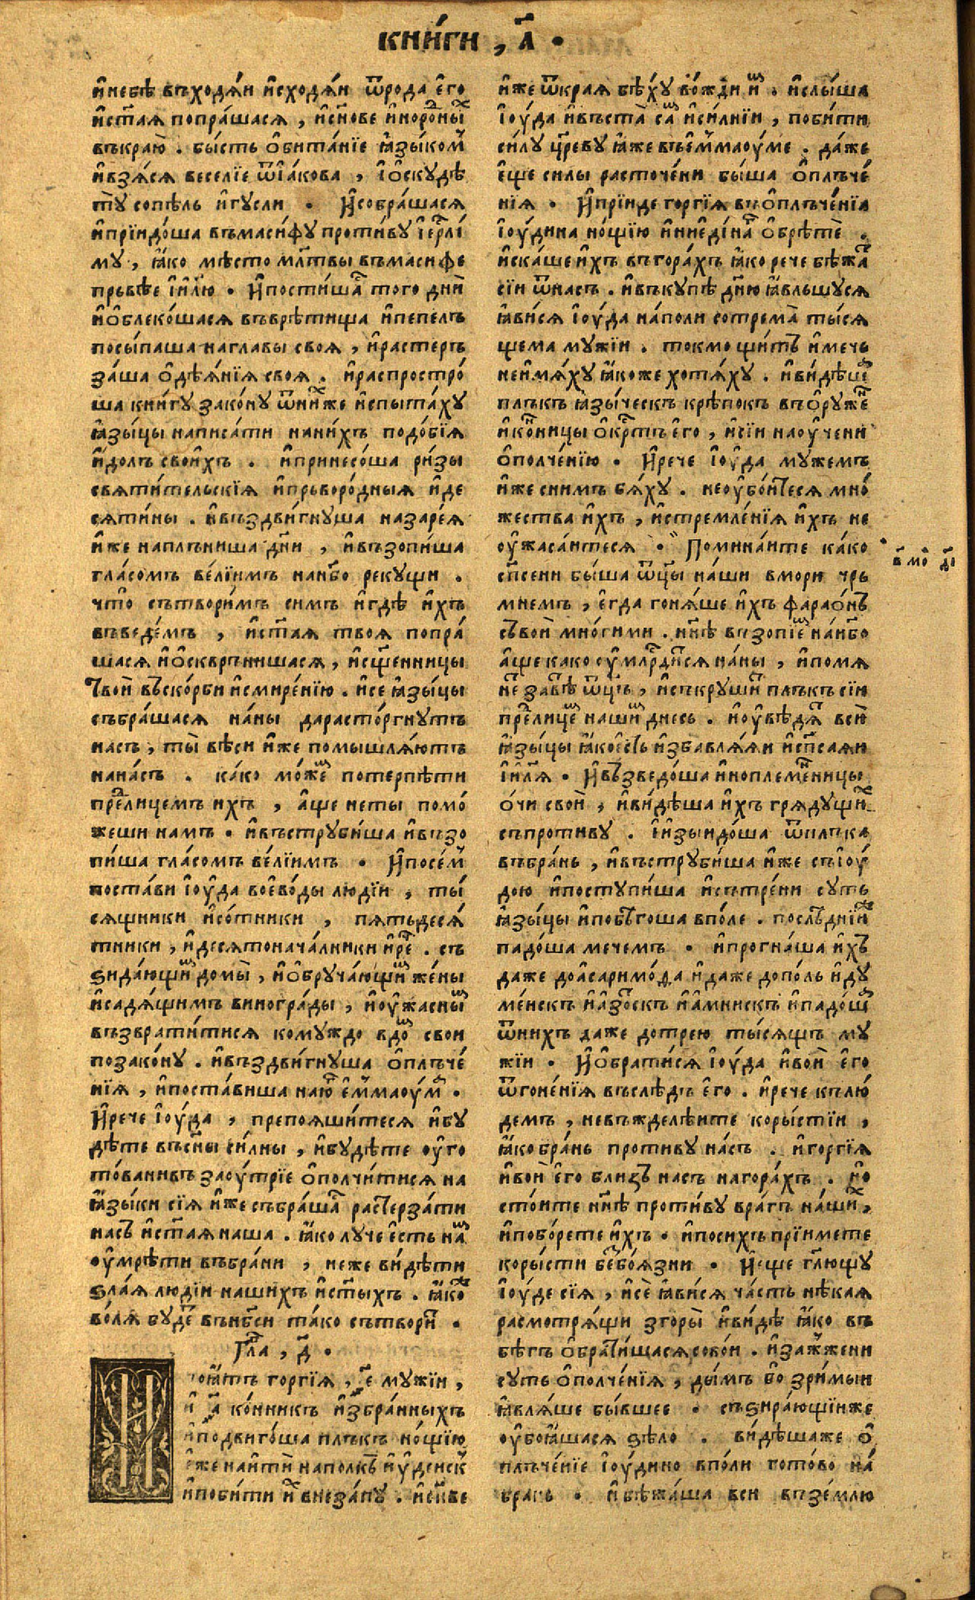 КНИ́ГИ , А҃ .
и҆небѣ въходѧ́и и҆сходѧ́и ѿрода є҆го
и҆ст҃аѧ попра́шасѧ , и҆сн҃ове и҆норо́дныⷯ
въкраю̀ . бы́сть ѻ҆бита́нїе ꙗ҆зы́комⷨ
и҆взѧ́сѧ веселїе ѿїа́кова , і҆ѻ҆скудѣ
тꙋ̀ сопѣ́ль и҆гꙋсли . И҆собра́шасѧ
и҆прїидо́ша въмаси́фꙋ противꙋ і҆ерⷭ҇лі
мꙋ , ꙗ҆ко мѣсто мл҃твы въмаси фе
прьвѣе і҆и҃лю . И҆пости́шаⷭ҇ того днѝ
и҆ѻ҆блеко́шасѧ въврѣтища и҆пепелъ
посы́паша наглавы своѧ̀ , и҆растерь
за́ша ѻ҆дѣѧ́нїѧ своѧ . и҆распростро́
ша кни́гꙋ зако́нꙋ ѿни́хⷤже и҆спыта́хꙋ
ꙗ҆зы́цы написа́ти нани́хъ подо́бїѧ
и҆́долъ свои́хъ . и҆принесо́ша ри́зы
свѧти́тельскїѧ и҆прьворо́дныѧ и҆де
сѧти́ны . и҆въздви́гнꙋша назаре́ѧ
и҆же наплъниша дн҃и , и҆възопи́ша
гла́сомъ ве́лїимъ нанб҃о рекꙋщи .
что̀ сътвори́мъ симъ и҆гдѣ и҆́хъ
въведе́мъ , и҆ст҃аѧ твоѧ попра́
шасѧ и҆ѻ҆скврънишасѧ , и҆сщ҃енницы
твоѝ въ́скорби и҆смире́нїю . и҆се ꙗ҆зы́цы
събра́шасѧ на́ны дарасто́ргнꙋтъ
насъ , ты̀ вѣси и҆же помышлѧ́ютъ
нанасъ . ка́ко мо́жеⷨ потерпѣти
предⷣлицемъ ихъ , а҆ще неты помо́
жеши намъ . и҆въстрꙋби́ша и҆възо
пи́ша гла́сомъ ве́лїимъ . И҆посе́мⷨ
поста́ви і҆ꙋ́да воево́ды лю́дїи , ты́
сѧщники и҆со́тники , пѧтьдесѧ́
тники , и҆десѧтонача́лники и҆ре́че . съ
ѕида́ющиⷨ домы̀ , и҆ѻ҆брꙋча́ющиⷨ же́ны
и҆сада́щимъ виногра́ды , и҆ѹ҆жасныⷨ
възврати́тисѧ комꙋждо вдоⷨ свои
позако́нꙋ . и҆въздви́гнꙋша ѻ҆плъче́
нїѧ , и҆поста́виша наю҆гⷤ е҆ммаоу́мⷨ .
И҆рече і҆ꙋ́да , препоѧ́шитесѧ и҆бꙋ
дѣте въсн҃ы си́лны , и҆бꙋдѣте ѹ҆го
то́ваниⷯвъ заоу́трїе ѻ҆полчи́тисѧ на
ꙗ҆зы́ки сїѧ и҆́же събра́шаⷭ҇ расте́рза́ти
насъ и҆ст҃аѧ наша . ꙗ҆́ко лꙋче є҆сть наⷨ
ѹ҆мрѣти въбра́ни , неже ви́дѣти
ѕла́ѧ лю́дїи нашихъ и҆ст҃ыхъ . ꙗ҆́коⷤ
во́лѧ бꙋ́деⷮ вънб҃си та́ко сътвори́тⷭ҇ .
Гла҃ , д҃ .
И поѧ́тъ горгі́ѧ , ҂е҃ мꙋжїи ,
и҆ ҂а҃ ко́нникъ и҆збра́нныхъ
и҆подвиго́ша плъкъ но́щїю
є҆же наити̑ наполкъ и҆ю҆де́искⷦ
и҆поби́ти и҆ⷯ внеза́пꙋ . и҆сн҃ве
и҆же ѿкраѧ бѣ́хꙋ во́жди иⷨ . и҆слы́ша
і҆ꙋ́да и҆въста̀ саⷨ и҆си́лнїи , поби́ти
си́лꙋ цр҃евꙋ ꙗ҆́же въе҆ммаоу́ме . да́же
є҆ще силы расточе́ни бы́ша ѻ҆плъче́
нїѧ . И҆прїиде горгїѧ въѻ҆плъче́нїѧ
і҆ꙋдина но́щїю и҆ниеди́наⷢ ѻ҆брѣ́те .
и҆ска́ше и҆хъ въгора́хъ ꙗ҆́ко рече бѣжаⷮ
сїи ѿнасъ . и҆въкꙋ́пѣ дн҃ю ꙗ҆́вльшꙋсѧ
ꙗ҆ви́сѧ і҆ꙋ́да на́поли сотрема̀ ты́сѧ
щема мꙋжїи . токмо щи́тъ и҆мечь
неимѧ́хꙋ ꙗ҆коже хотѧ́хꙋ . и҆ви́дѣшⷷ
плъкъ ꙗ҆зы́ческъ крѣ́покъ въѻ҆рꙋ́жїи
и҆ко́нницы ѻ҆крⷭ҇тъ є҆го , и҆сїи наоу́чени
ѻ҆полче́нїю . И҆рече і҆ꙋ́да мꙋжемъ
и҆же снимъ бѧ́хꙋ . неоубо́итесѧ мно́
жества и҆хъ , и҆стремле́нїѧ и҆́хъ не
ѹ҆жаса́итесѧ . Помина́ите ка́ко
сп҃сени бы́ша ѿц҃ы на́ши вмори чръ
мнемъ , є҆гда гонѧ́ше и҆хъ фарао́нъ
съвои́ мно́гими . нн҃ѣ възопїе́мⷨ нанб҃о
а҆́ще како оумлⷭ҇рдитсѧ на́ны , и҆помѧ
неⷮ завѣⷮ ѿц҃ъ , и҆съкрꙋши́тⷮ плъкъ сїи
преⷣлицеⷨ нашиⷨ днесь . и҆ѹ҆вѣ́дѧⷮ всѝ
ꙗ҆зы́цы ꙗ҆́коєсть и҆збавлѧ́ѧи и҆сп҃саѧи
і҆и҃лѧ . И҆възведо́ша и҆ноплеме́нницы
о́чи своѝ , и҆ви́дѣша и҆хъ грѧдꙋ́щиⷯ
съпроти́вꙋ . і҆и҆зыидо́ша ѿплъка
въбра́нь , и҆въстрꙋби́ша и҆же съі҆ꙋ
дою и҆постꙋпи́ша и҆сътре́ни сꙋть
ꙗ҆зы́цы и҆побѣго́ша вполе . послѣднїиⷤ
падо́ша мечемъ . и҆прогна́ша и҆́хъ
даже доасаримо́да и҆даже дополь и҆дꙋ
ме́искъ и҆азо́скъ и҆амнискъ и҆падоⷲ
ѿнихъ даже дотрею ты́сѧщъ мꙋ
жїи . И҆ѻ҆брати́сѧ і҆ꙋ́да и҆воѝ є҆го
ѿгоне́нїѧ въслѣдъ є҆го . и҆рече къ лю́
демъ , невъжделѣ́ите коры́стїи ,
ꙗ҆́ко бра́нь противꙋ на́съ . и҆горгі́ѧ
и҆воѝ є҆го бли́зъ насъ нагора́хъ . но
сто́ите нн҃ѣ проти́вꙋ вра́гъ на́шиⷯ ,
и҆побо́рете и҆́хъ . и҆поси́хъ прїимете
коры́сти беⷥбоѧ́зни . Є҆ще гл҃ющꙋ
і҆ꙋде сїѧ , и҆сѐ ꙗ҆ви́сѧ ча́сть нѣ́каѧ
расмотрѧ́щи згоры̀ и҆ви́дѣ ꙗ҆́ко въ
бѣ́гъ ѻ҆брати́шасѧ свои . и҆зажжени
сꙋть ѻ҆полче́нїѧ , ды́мъ бо зри́мыи
ꙗ҆влѧ́ше бы́вшее . съѕира́ющїиже
ѹ҆боꙗ҆́шасѧ ѕѣло . ви́дѣшаже ѻ҆
плъче́нїе і҆ꙋ́дино впо́ли гото́во на́
брань . и҆бѣжа́ша вси въземлю
в҃ мо҃ д҃і